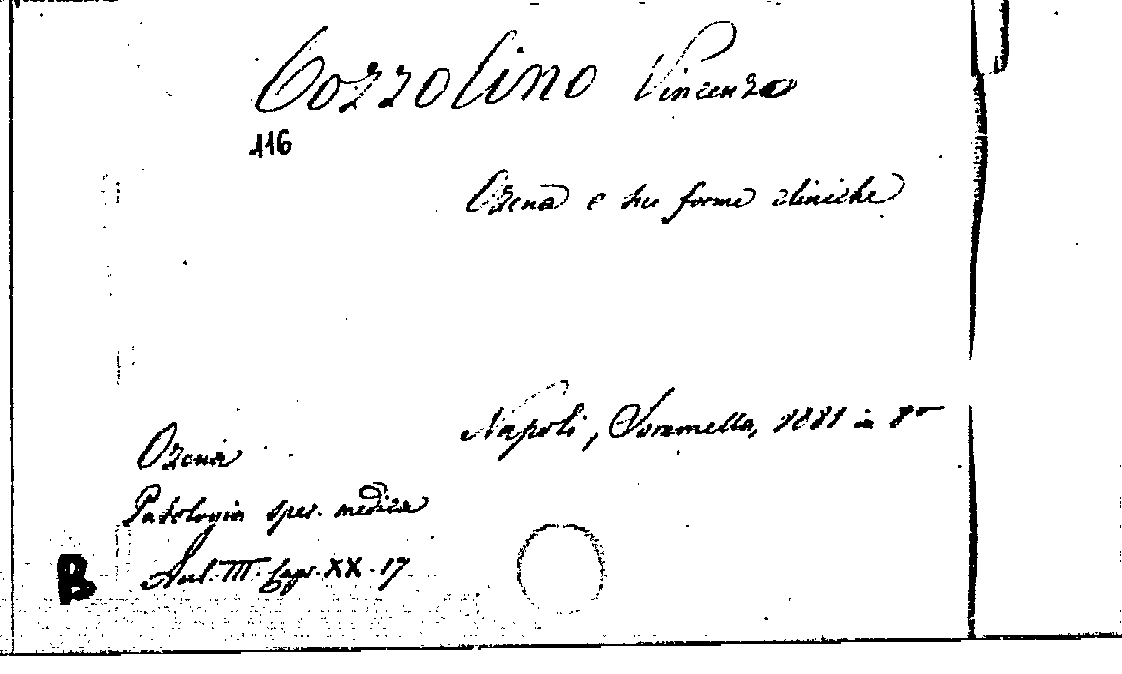 Cozzolino Vincenzo
116
Ozena e sue forme cliniche
Napoli, Saramella, 1881 in 8°
Ozena
Patologia spec. medica
Aul. III. Caps. XX. 17
B